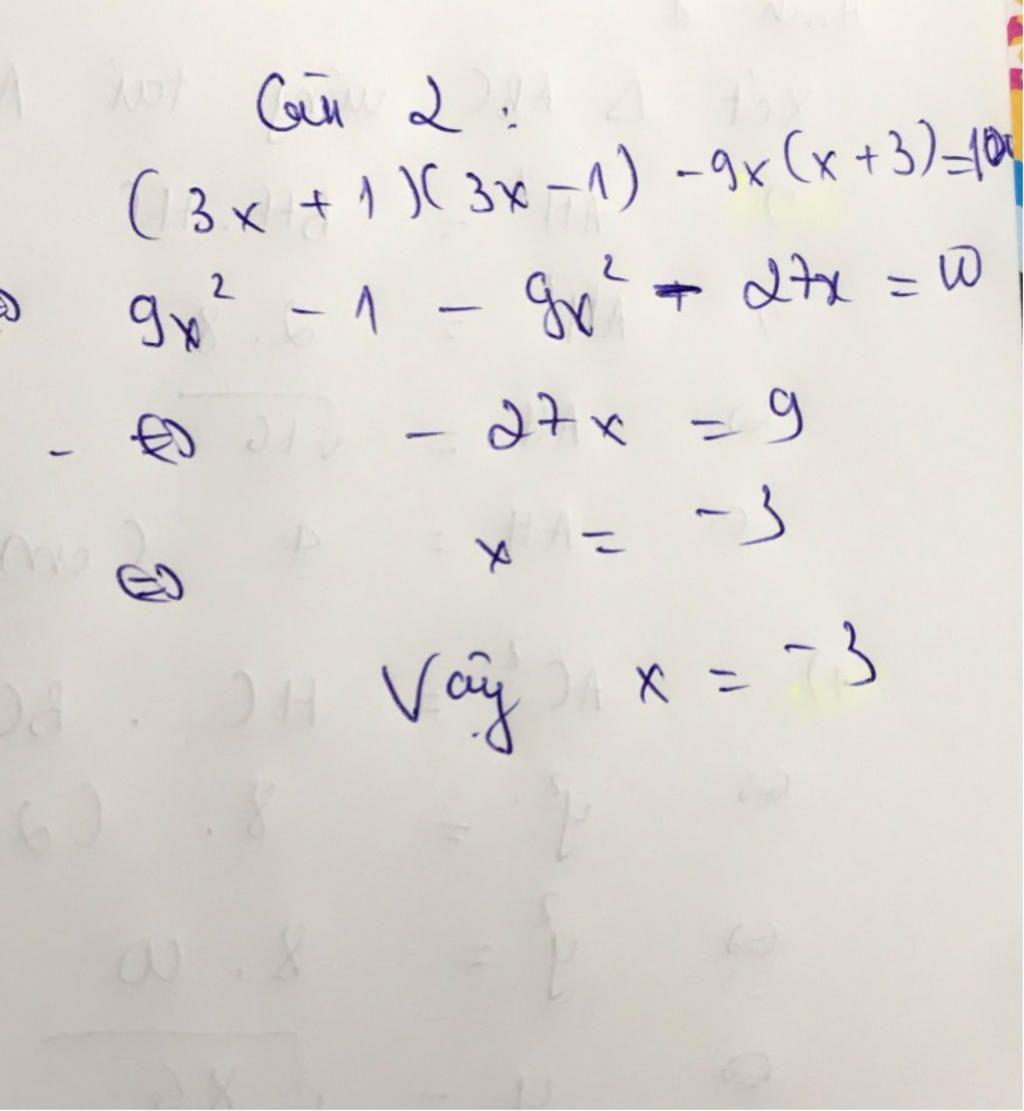 Câu 2 :
(3x + 1)(3x - 1) - 9x(x + 3) = 10
⇔ 9x² - 1 - 9x² - 27x = 10
- ⇔ - 27x = 9
⇔ x = -3
Vậy x = -3